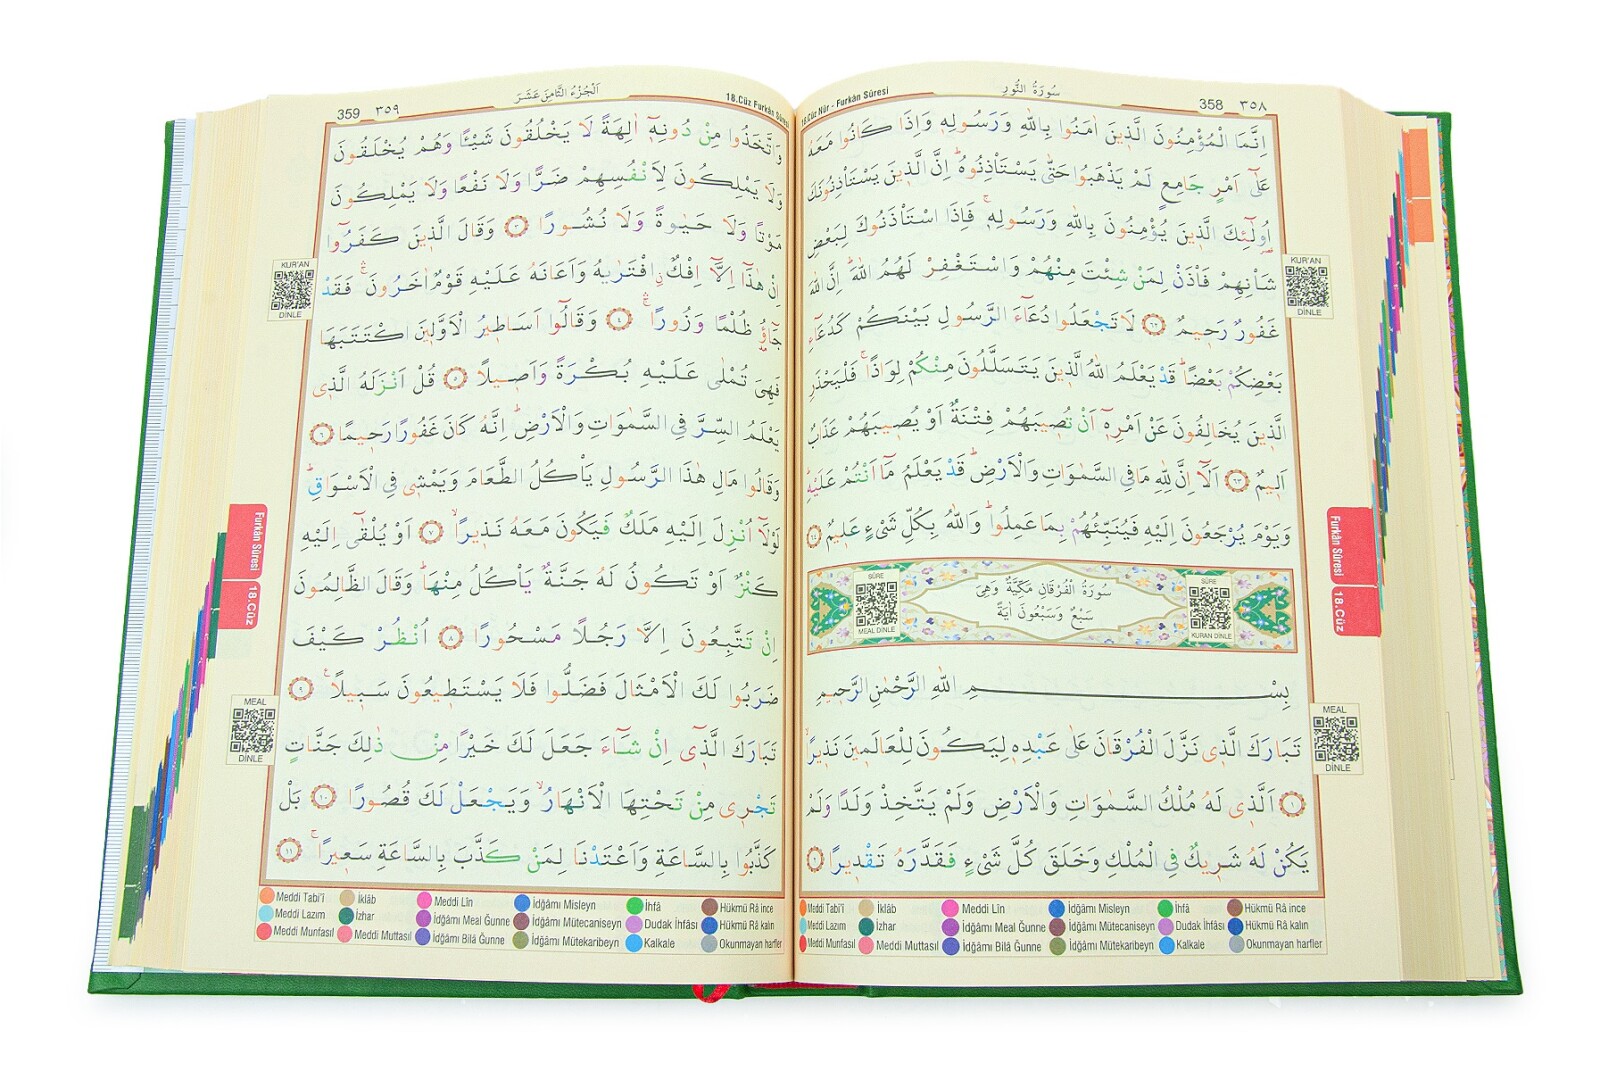 358 ٣٥٨
سُورَةُ النُّورِ
18.Cüz Nûr - Furkân Sûresi
اِنَّمَا الْمُؤْمِنُونَ الَّذٖينَ اٰمَنُوا بِاللّٰهِ وَرَسُولِهٖ وَاِذَا كَانُوا مَعَهُ
عَلٰٓى اَمْرٍ جَامِعٍ لَمْ يَذْهَبُوا حَتّٰى يَسْتَاْذِنُوهُۜ اِنَّ الَّذٖينَ يَسْتَاْذِنُونَكَ
اُو۬لٰٓئِكَ الَّذٖينَ يُؤْمِنُونَ بِاللّٰهِ وَرَسُولِهٖۚ فَاِذَا اسْتَاْذَنُوكَ لِبَعْضِ
شَاْنِهِمْ فَاْذَنْ لِمَنْ شِئْتَ مِنْهُمْ وَاسْتَغْفِرْ لَهُمُ اللّٰهَۜ اِنَّ اللّٰهَ
غَفُورٌ رَحٖيمٌ ٦٢ لَا تَجْعَلُوا دُعَٓاءَ الرَّسُولِ بَيْنَكُمْ كَدُعَٓاءِ
بَعْضِكُمْ بَعْضًاۜ قَدْ يَعْلَمُ اللّٰهُ الَّذٖينَ يَتَسَلَّلُونَ مِنْكُمْ لِوَاذًاۚ فَلْيَحْذَرِ
الَّذٖينَ يُخَالِفُونَ عَنْ اَمْرِهٖٓ اَنْ تُصٖيبَهُمْ فِتْنَةٌ اَوْ يُصٖيبَهُمْ عَذَابٌ
اَلٖيمٌ ٦٣ اَلَٓا اِنَّ لِلّٰهِ مَا فِي السَّمٰوَاتِ وَالْاَرْضِۜ قَدْ يَعْلَمُ مَٓا اَنْتُمْ عَلَيْهِۜ
وَيَوْمَ يُرْجَعُونَ اِلَيْهِ فَيُنَبِّئُهُمْ بِمَا عَمِلُواۜ وَاللّٰهُ بِكُلِّ شَيْءٍ عَلٖيمٌ ٦٤
SÛRE
KURAN DİNLE
سُورَةُ الْفُرْقَانِ مَكِّيَّةٌ وَهِيَ
سَبْعٌ وَسَبْعُونَ اٰيَةً
SÛRE
MEAL DİNLE
بِسْمِ اللّٰهِ الرَّحْمٰنِ الرَّحٖيمِ
تَبَارَكَ الَّذٖي نَزَّلَ الْفُرْقَانَ عَلٰى عَبْدِهٖ لِيَكُونَ لِلْعَالَمٖينَ نَذٖيرًاۙ
١ اَلَّذٖي لَهُ مُلْكُ السَّمٰوَاتِ وَالْاَرْضِ وَلَمْ يَتَّخِذْ وَلَدًا وَلَمْ
يَكُنْ لَهُ شَرٖيكٌ فِي الْمُلْكِ وَخَلَقَ كُلَّ شَيْءٍ فَقَدَّرَهُ تَقْدٖيرًا ٢
KUR'AN
DİNLE
Furkân Sûresi
18.Cüz
MEAL
DİNLE
Meddi Tabi'î İklâb Meddi Lîn İdğâmı Misleyn İhfâ Hükmü Râ ince
Meddi Lazım İzhar İdğâmı Meal Ğunne İdğâmı Mütecaniseyn Dudak İhfâsı Hükmü Râ kalın
Meddi Munfasıl Meddi Muttasıl İdğâmı Bilâ Ğunne İdğâmı Mütekaribeyn Kalkale Okunmayan harfler
18.Cüz Furkân Sûresi
اَلْجُزْءُ الثَّامِنَ عَشَرَ
359 ٣٥٩
وَاتَّخَذُوا مِنْ دُونِهٖٓ اٰلِهَةً لَا يَخْلُقُونَ شَيْـًٔا وَهُمْ يُخْلَقُونَ
وَلَا يَمْلِكُونَ لِاَنْفُسِهِمْ ضَرًّا وَلَا نَفْعًا وَلَا يَمْلِكُونَ
مَوْتًا وَلَا حَيٰوةً وَلَا نُشُورًا ٣ وَقَالَ الَّذٖينَ كَفَرُٓوا
اِنْ هٰذَٓا اِلَّٓا اِفْكٌۨ افْتَرٰيهُ وَاَعَانَهُ عَلَيْهِ قَوْمٌ اٰخَرُونَۚۛ فَقَدْ
جَٓاؤُ۫ ظُلْمًا وَزُورًاۚۛ ٤ وَقَالُٓوا اَسَاطٖيرُ الْاَوَّلٖينَ اكْتَتَبَهَا
فَهِيَ تُمْلٰى عَلَيْهِ بُكْرَةً وَاَصٖيلًا ٥ قُلْ اَنْزَلَهُ الَّذٖي
يَعْلَمُ السِّرَّ فِي السَّمٰوَاتِ وَالْاَرْضِۜ اِنَّهُ كَانَ غَفُورًا رَحٖيمًا ٦
وَقَالُوا مَالِ هٰذَا الرَّسُولِ يَاْكُلُ الطَّعَامَ وَيَمْشٖي فِي الْاَسْوَاقِۜ
لَوْلَٓا اُنْزِلَ اِلَيْهِ مَلَكٌ فَيَكُونَ مَعَهُ نَذٖيرًاۙ ٧ اَوْ يُلْقٰٓى اِلَيْهِ
كَنْزٌ اَوْ تَكُونُ لَهُ جَنَّةٌ يَاْكُلُ مِنْهَاۜ وَقَالَ الظَّالِمُونَ
اِنْ تَتَّبِعُونَ اِلَّا رَجُلًا مَسْحُورًا ٨ اُنْظُرْ كَيْفَ
ضَرَبُوا لَكَ الْاَمْثَالَ فَضَلُّوا فَلَا يَسْتَطٖيعُونَ سَبٖيلًا۟ ٩
تَبَارَكَ الَّذٖٓي اِنْ شَٓاءَ جَعَلَ لَكَ خَيْرًا مِنْ ذٰلِكَ جَنَّاتٍ
تَجْرٖي مِنْ تَحْتِهَا الْاَنْهَارُۙ وَيَجْعَلْ لَكَ قُصُورًا ١٠ بَلْ
كَذَّبُوا بِالسَّاعَةِ وَاَعْتَدْنَا لِمَنْ كَذَّبَ بِالسَّاعَةِ سَعٖيرًاۚ ١١
KUR'AN
DİNLE
Furkân Sûresi
18.Cüz
MEAL
DİNLE
Meddi Tabi'î İklâb Meddi Lîn İdğâmı Misleyn İhfâ Hükmü Râ ince
Meddi Lazım İzhar İdğâmı Meal Ğunne İdğâmı Mütecaniseyn Dudak İhfâsı Hükmü Râ kalın
Meddi Munfasıl Meddi Muttasıl İdğâmı Bilâ Ğunne İdğâmı Mütekaribeyn Kalkale Okunmayan harfler